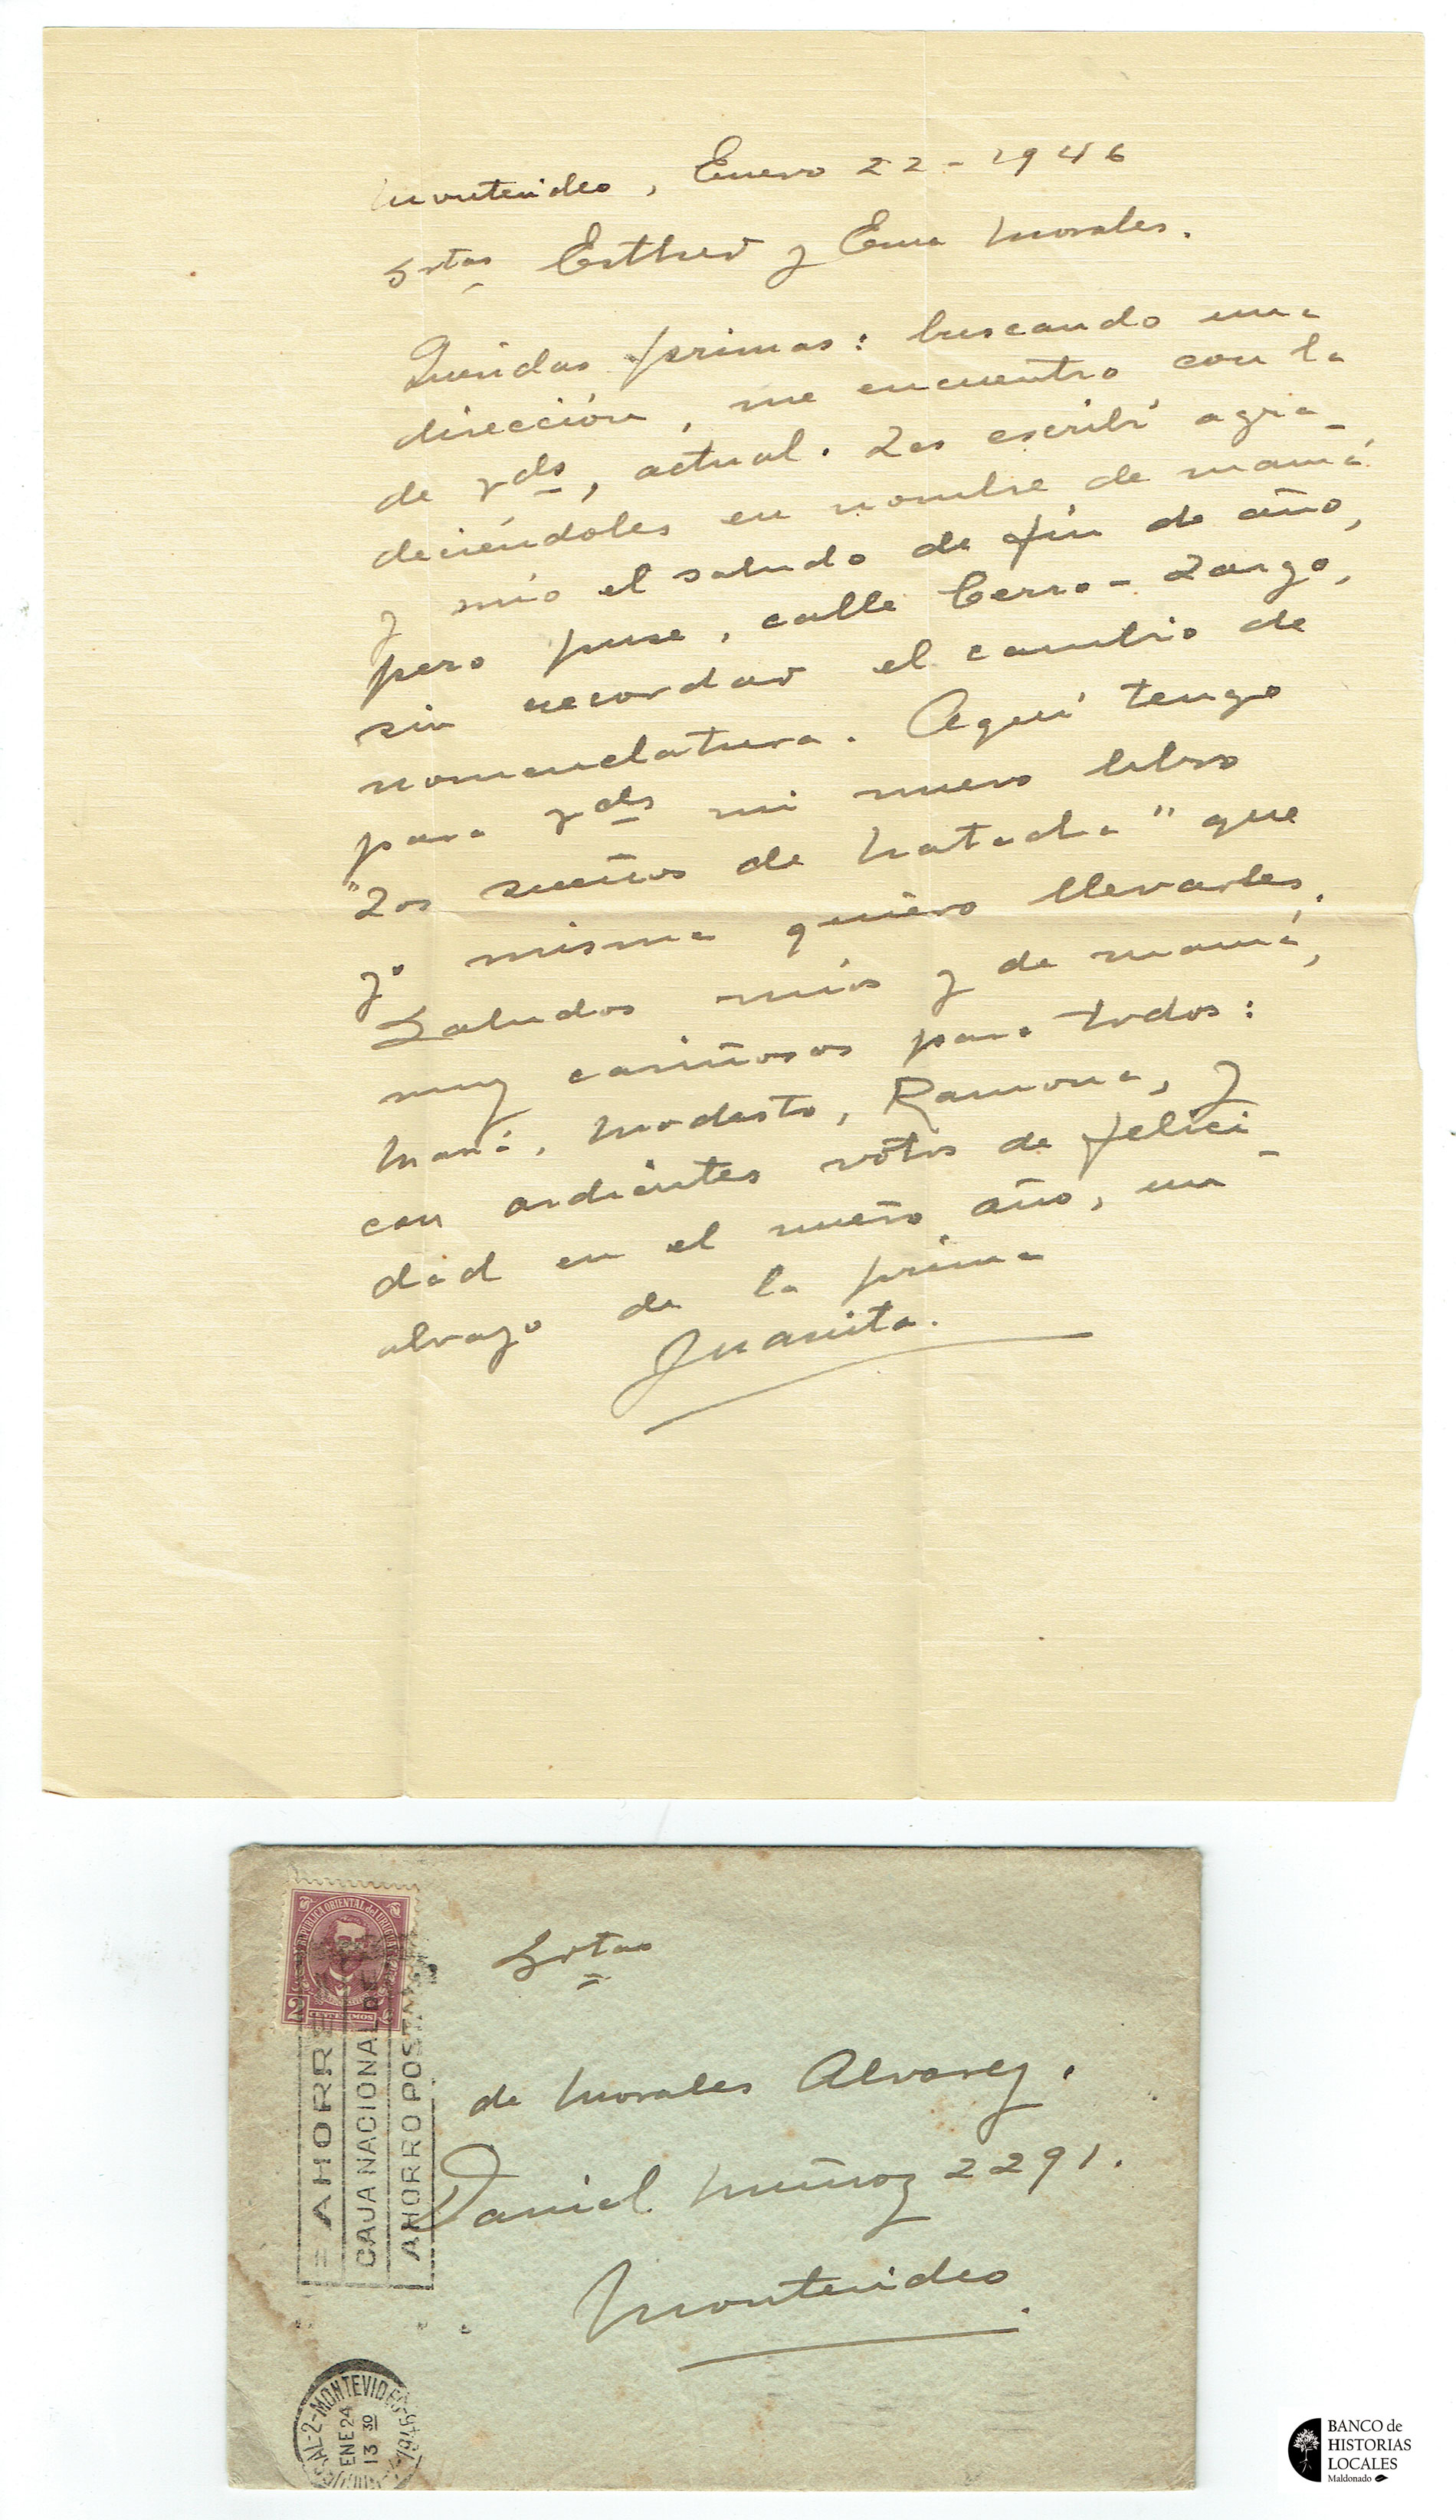 Montevideo, Enero 22-1946
Srtas Esther y Ema Morales.
Queridas primas: buscando una
dirección, me encuentro con la
de Vds, actual. Les escribí agra-
deciéndoles en nombre de mamá
y mío el saludo de fin de año,
pero puse, calle Cerro-Largo,
sin recordar el cambio de
nomenclatura. Aquí tengo
para Vds mi nuevo libro
"Los sueños de Natacha" que
yo misma quiero llevarles.
Saludos míos y de mamá,
muy cariñosos para todos:
Modesto, Ramona, y
con ardientes votos de felici-
dad en el nuevo año, un
abrazo de la prima
Juanita.
REPUBLICA ORIENTAL del URUGUAY
2 CENTESIMOS
AHORRE
CAJA NACIONAL DE
AHORRO POSTAL
Srtas
de Morales Alvarez.
Daniel Muñoz 2291.
Montevideo
AL-2-MONTEVIDEO
ENE 24
13 30
1946
BANCO de
HISTORIAS
LOCALES
Maldonado